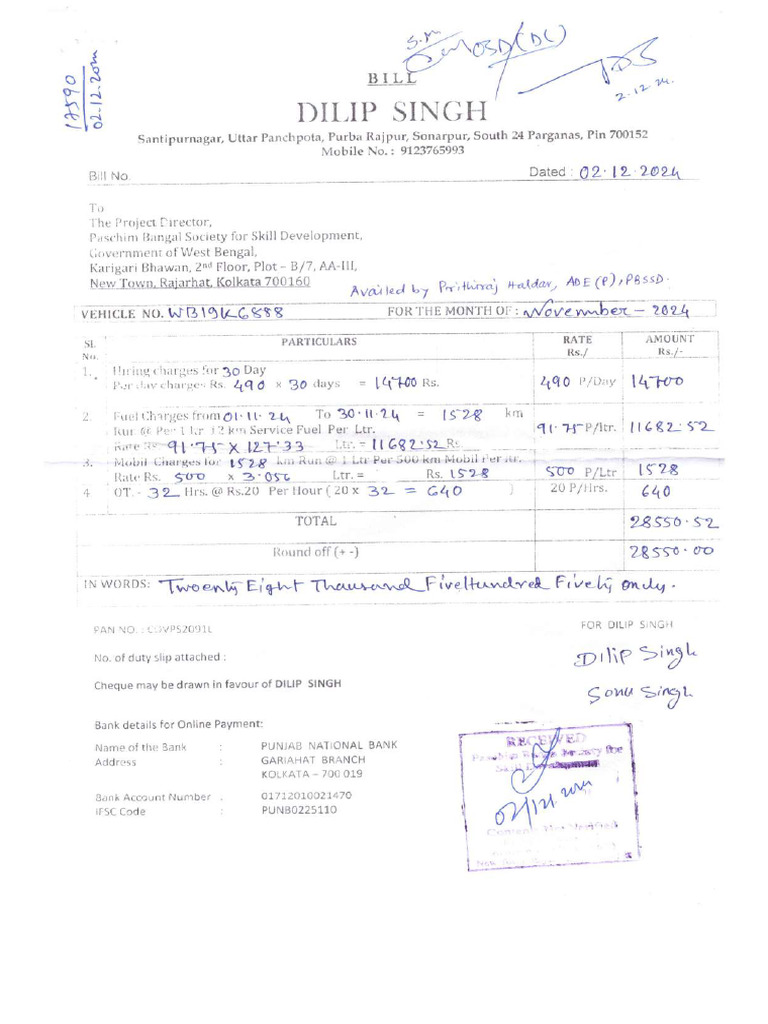 17590
02.12.2024
S.M
OSD(DC)
2.12.24.
BILL
DILIP SINGH
Santipurnagar, Uttar Panchpota, Purba Rajpur, Sonarpur, South 24 Parganas, Pin 700152
Mobile No. : 9123765993
Bill No.
Dated : 02.12.2024
To
The Project Director,
Paschim Bangal Society for Skill Development,
Government of West Bengal,
Karigari Bhawan, 2nd Floor, Plot – B/7, AA-III,
New Town, Rajarhat, Kolkata 700160
Availed by Prithiraj Haldar, ADE (P), PBSSD.
VEHICLE NO. WB19K6888 FOR THE MONTH OF : November – 2024
SL No. PARTICULARS RATE Rs./ AMOUNT Rs./-
1. Hiring charges for 30 Day
Per day charges Rs. 490 x 30 days = 14700 Rs. 490 P/Day 14700
2. Fuel Charges from 01.11.24 To 30.11.24 = 1528 km
Run @ Per 1 Ltr 12 km Service Fuel Per Ltr. 91.75 P/ltr. 11682.52
Rate Rs 91.75 x 127.33 Ltr. = 11682.52 Rs
3. Mobil Charges for 1528 km Run @ 1 Ltr Per 500 km Mobil Per ltr.
Rate Rs. 500 x 3.056 Ltr. = Rs. 1528 500 P/Ltr 1528
4 OT. - 32 Hrs. @ Rs.20 Per Hour ( 20 x 32 = 640 ) 20 P/Hrs. 640
TOTAL 28550.52
Round off (+ -) 28550.00
IN WORDS: Twoenty Eight Thausand FiveHundred Fivety only.
PAN NO. :
FOR DILIP SINGH
No. of duty slip attached :
Dilip Singh
Cheque may be drawn in favour of DILIP SINGH
Sonu Singh
Bank details for Online Payment:
Name of the Bank : PUNJAB NATIONAL BANK
Address : GARIAHAT BRANCH
KOLKATA – 700 019
Bank Account Number : 01712010021470
IFSC Code : PUNB0225110
RECEIVED
Skill Development
02/12/2024
Contents Not Verified